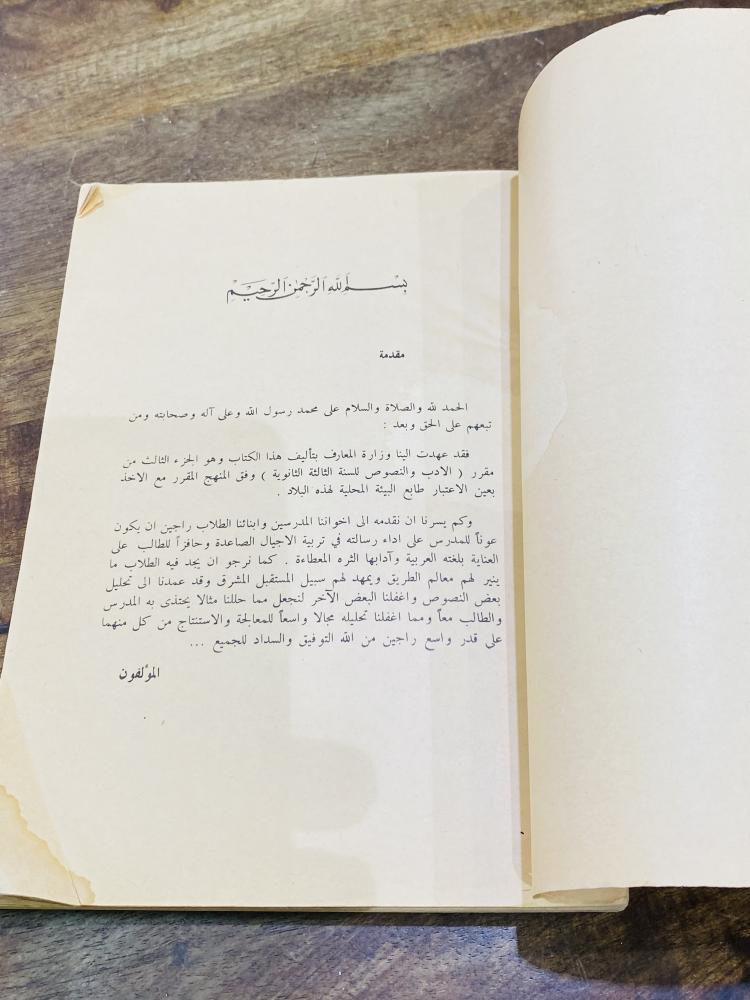 بسم الله الرحمن الرحيم
مقدمة
الحمد لله والصلاة والسلام على محمد رسول الله وعلى آله وصحابته ومن
تبعهم على الحق وبعد :
فقد عهدت الينا وزارة المعارف بتأليف هذا الكتاب وهو الجزء الثالث من
مقرر ( الادب والنصوص للسنة الثالثة الثانوية ) وفق المنهج المقرر مع الاخذ
بعين الاعتبار طابع البيئة المحلية لهذه البلاد .
وكم يسرنا ان نقدمه الى اخواننا المدرسين وابنائنا الطلاب راجين ان يكون
عوناً للمدرس على اداء رسالته في تربية الاجيال الصاعدة وحافزاً للطالب على
العناية بلغته العربية وآدابها الثره المعطاءة . كما نرجو ان يجد فيه الطلاب ما
ينير لهم معالم الطريق ويمهد لهم سبيل المستقبل المشرق وقد عمدنا الى تحليل
بعض النصوص واغفلنا البعض الآخر لنجعل مما حللنا مثالا يحتذى به المدرس
والطالب معاً ومما اغفلنا تحليله مجالا واسعاً للمعالجة والاستنتاج من كل منهما
على قدر واسع راجين من الله التوفيق والسداد للجميع ...
المؤلفون